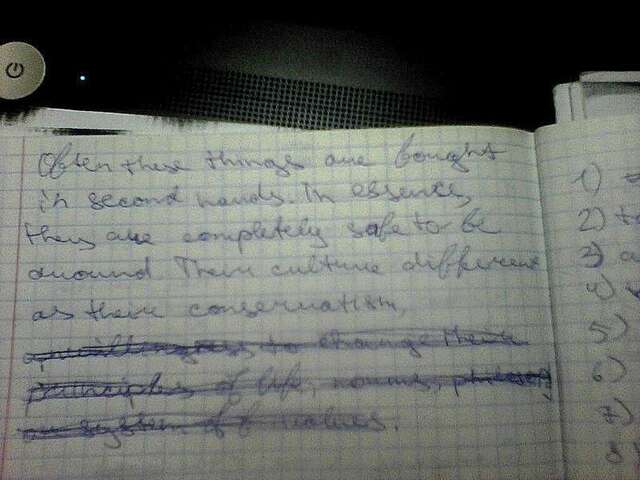 Often these things are bought
in second hands. In essence,
they are completely safe to be
around. Their culture different
as their conservatism,
unwillingness to change their
principles of life, norms, philosophy
system of values.
1)
2) t
3) a
4)
5)
6)
7)
8)